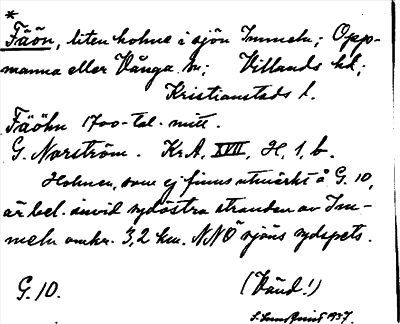 *
Fäön, liten holme i sjön Immeln; Opp-
manna eller Vånga sn; Villands hd;
Kristianstads l.
Fäöhn 1700-tal. mitt.
G. Norström. Kr.A. XVII, H, 1, b.
Holmen, som ej finns utmärkt å G. 10,
är bel. invid sydöstra stranden av Im-
meln omkr. 3,2 km. NNÖ sjöns sydspets.
G. 10. (Vänd!)
S. Lundquist 1937.